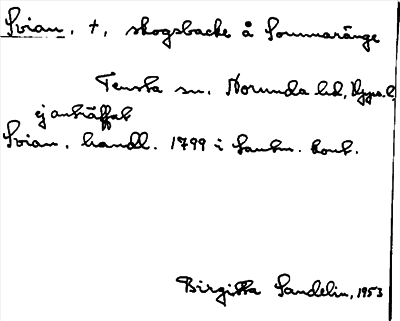 Svian, +, skogsbacke å Sommaränge
Tensta sn. Norunda hd, Upps. l.
ej anträffat
Svian. handl. 1799 i Lantm. kont.
Birgitta Sandelin, 1953